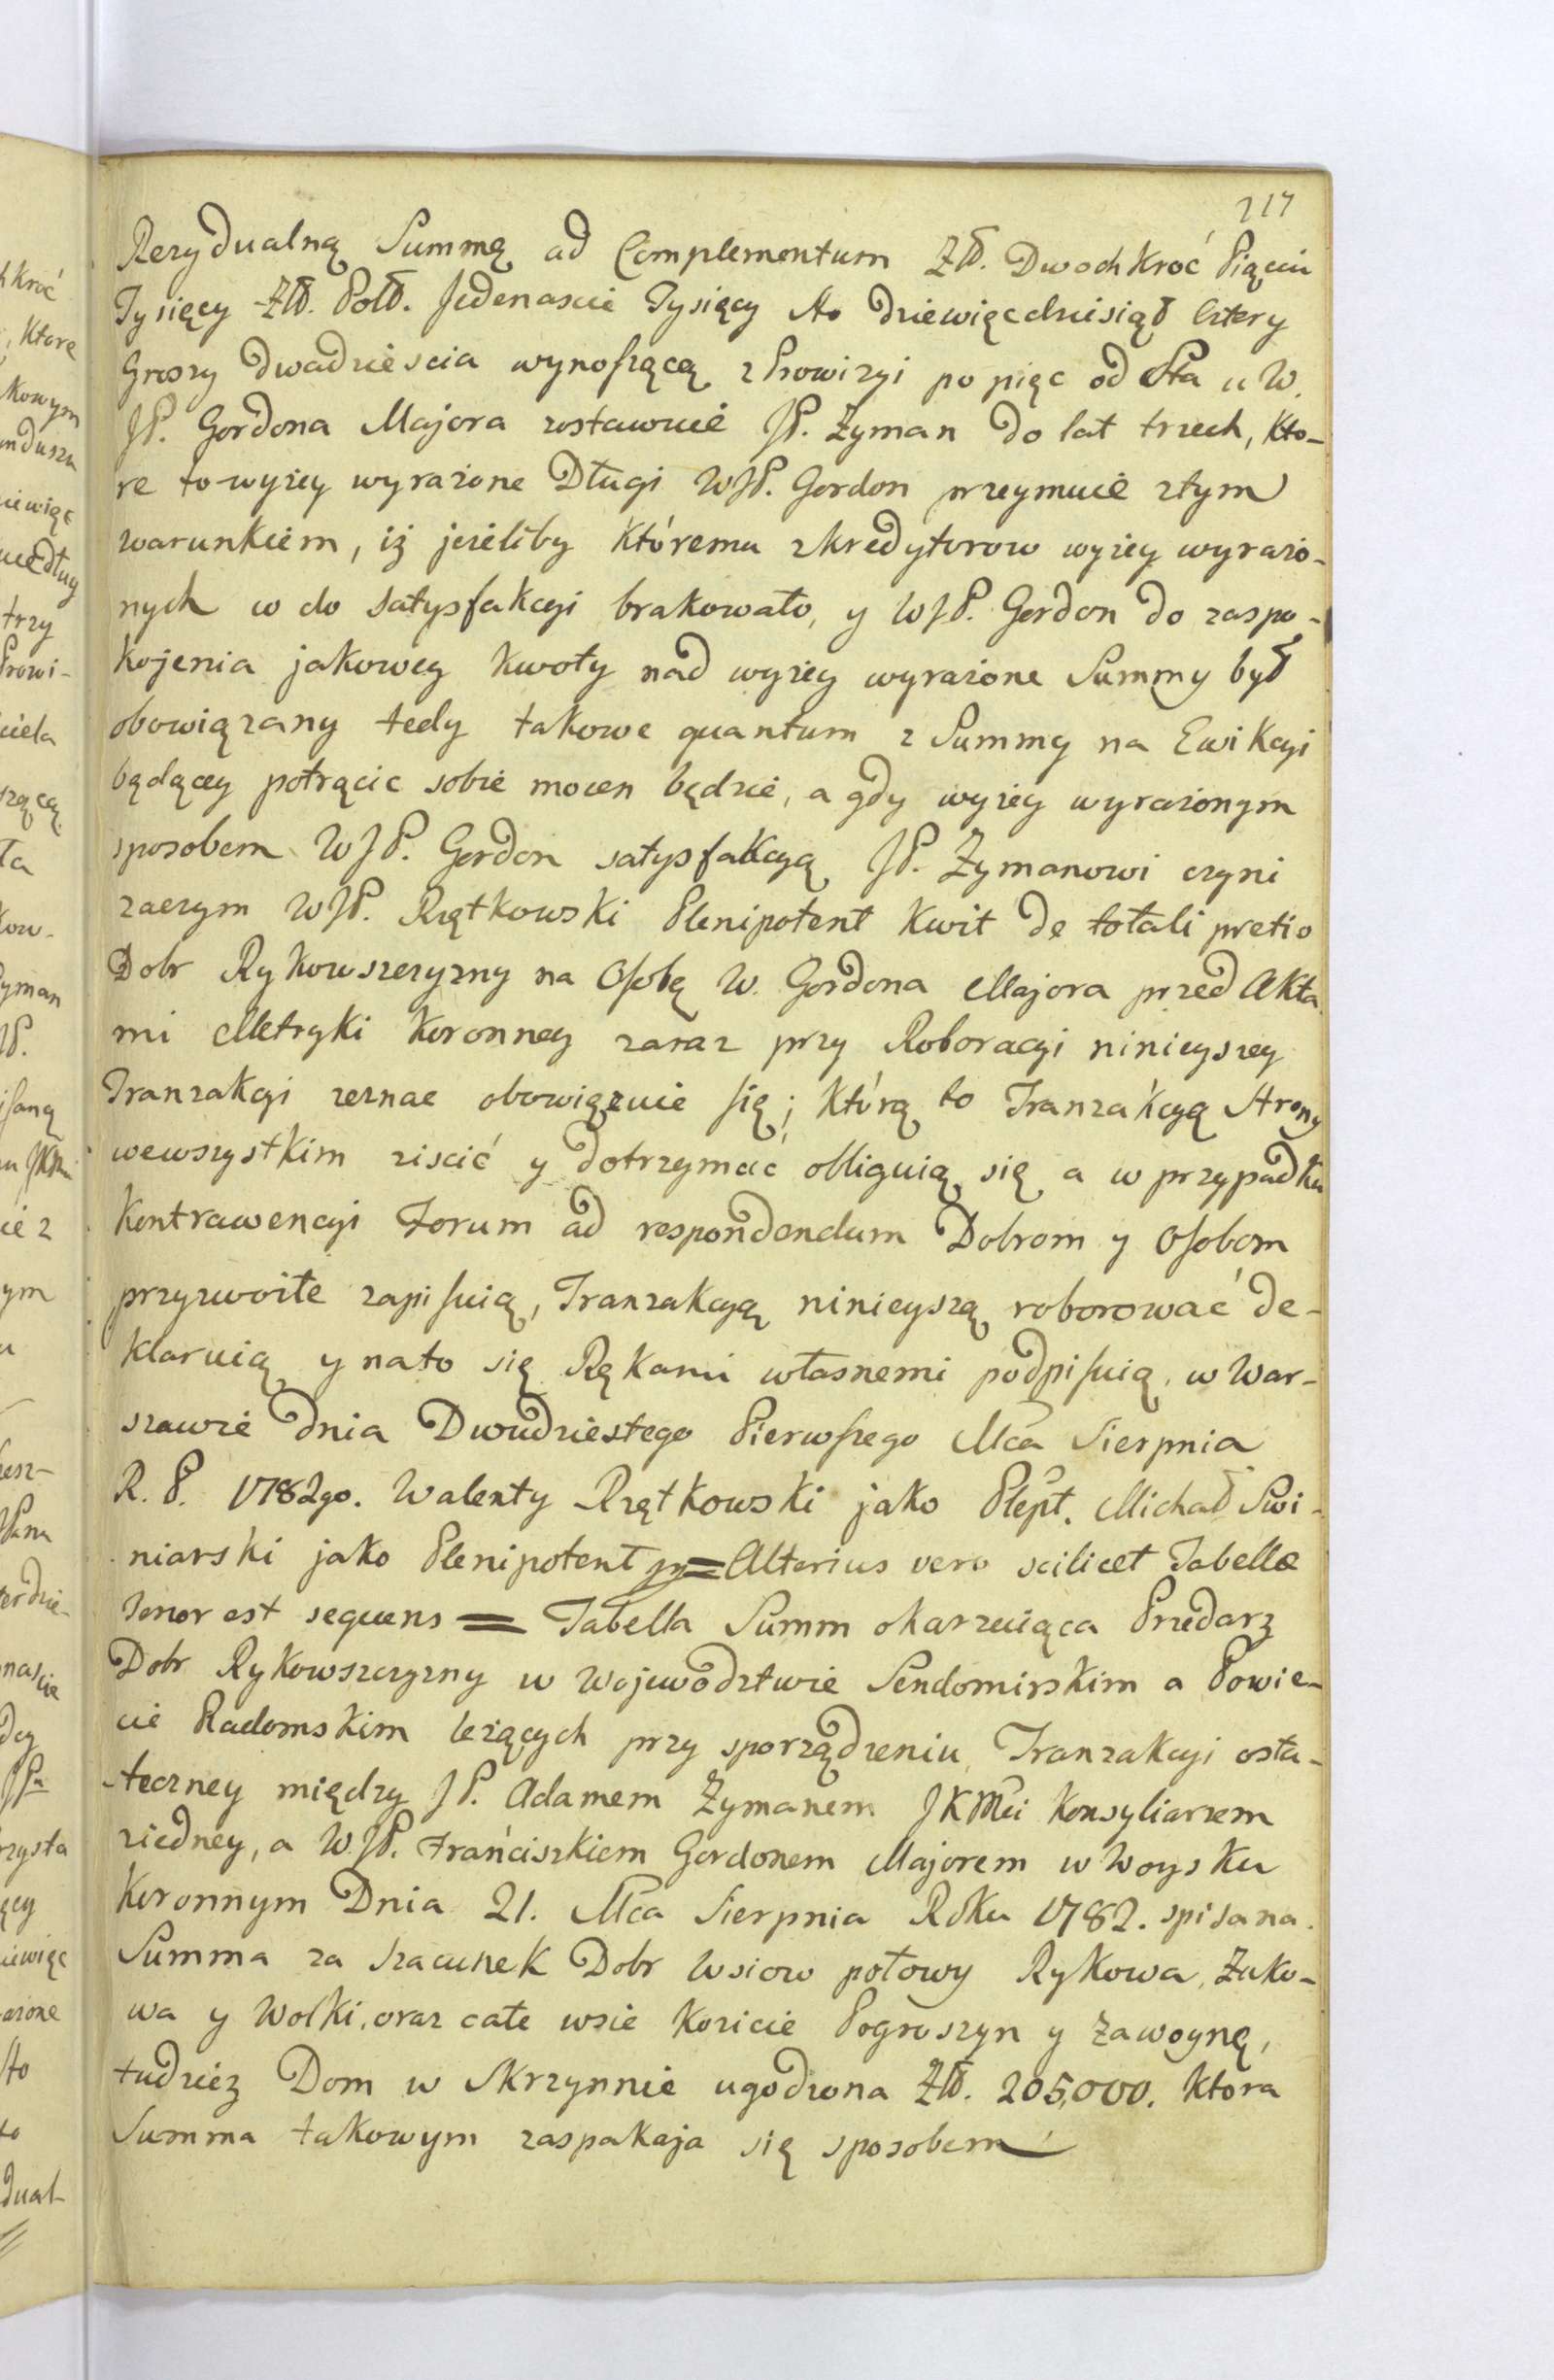 217
Rezydualną Summę ad Complementum Złł. Dwoch Kroć Pięciu
Tysięcy Złł. Polł. Jedenascie Tysięcy sto dziewięcdziesiąt Cztery
Groszy dwadziescia wynoszącą z Prowizyi po pięc od Sta u W.
JP. Gordona Majora zostawuie JP. Zyman do lat trzech, Kto-
re to wyzey wyrazone Długi WJP. Gordon przeymuie ztym
warunkiem, iż jezeliby Któremu z kredytorow wyzey wyrazo-
nych w do satysfakcyi brakowało, y WJP. Gordon do zaspo-
kojenia jakowey Kwoty nad wyzey wyrazone Summy był
obowiązany tedy takowe quantum z Summy na Ewikcyi
będącey potrącic sobie mocen będzie, a gdy wyzey wyrazonym
sposobem WJP. Gordon satysfakcyą JP. Zymanowi czyni
zaczym WJP. Rzętkowski Plenipotent Kwit de totali pretio
Dobr Rykowszczyzny na Osobę W. Gordona Majora przed Akta
mi Metryki Koronney zaraz przy Roboracyi ninieyszey
Tranzakcyi zeznac obowiązuie się; Którą to Tranzakcyą Strony
wewszystkim ziscić y dotrzymać obliguią się a w przypadku
Kontrawencyi Forum ad respondendum Dobrom y Osobom
przyzwoite zapisuią, Tranzakcyą ninieyszą roborować de-
klaruią y nato się Rękami własnemi podpisuią, w War-
szawie Dnia Dwudziestego Pierwszego Mca Sierpnia
R. P. 1782go. Walenty Rzętkowski jako Plept. Michał Swi-
niarski jako Plenipotent = Alterius vero scilicet Tabellæ
tenor est sequens = Tabella Summ okazuiąca Przedarz
Dobr Rykowszczyzny w Wojewodztwie Sendomirskim a Powie-
cie Radomskim leżących przy sporządzeniu Tranzakcyi osta-
teczney między JP. Adamem Zymanem JKMci Konsyliarzem
ziedney, a WJP. Franciszkiem Gordonem Majorem w Woysku
Koronnym Dnia 21. Mca Sierpnia Roku 1782. spisana.
Summa za szacunek Dobr Wsiow połowy Rykowa, Zuko-
wa y Wolki, oraz całe wsie Kozicie Pogroszyn y Zawoynę,
tudziez Dom w Skrzynnie ugodzona Złł. 205,000. Ktora
Summa takowym zaspakaja się sposobem